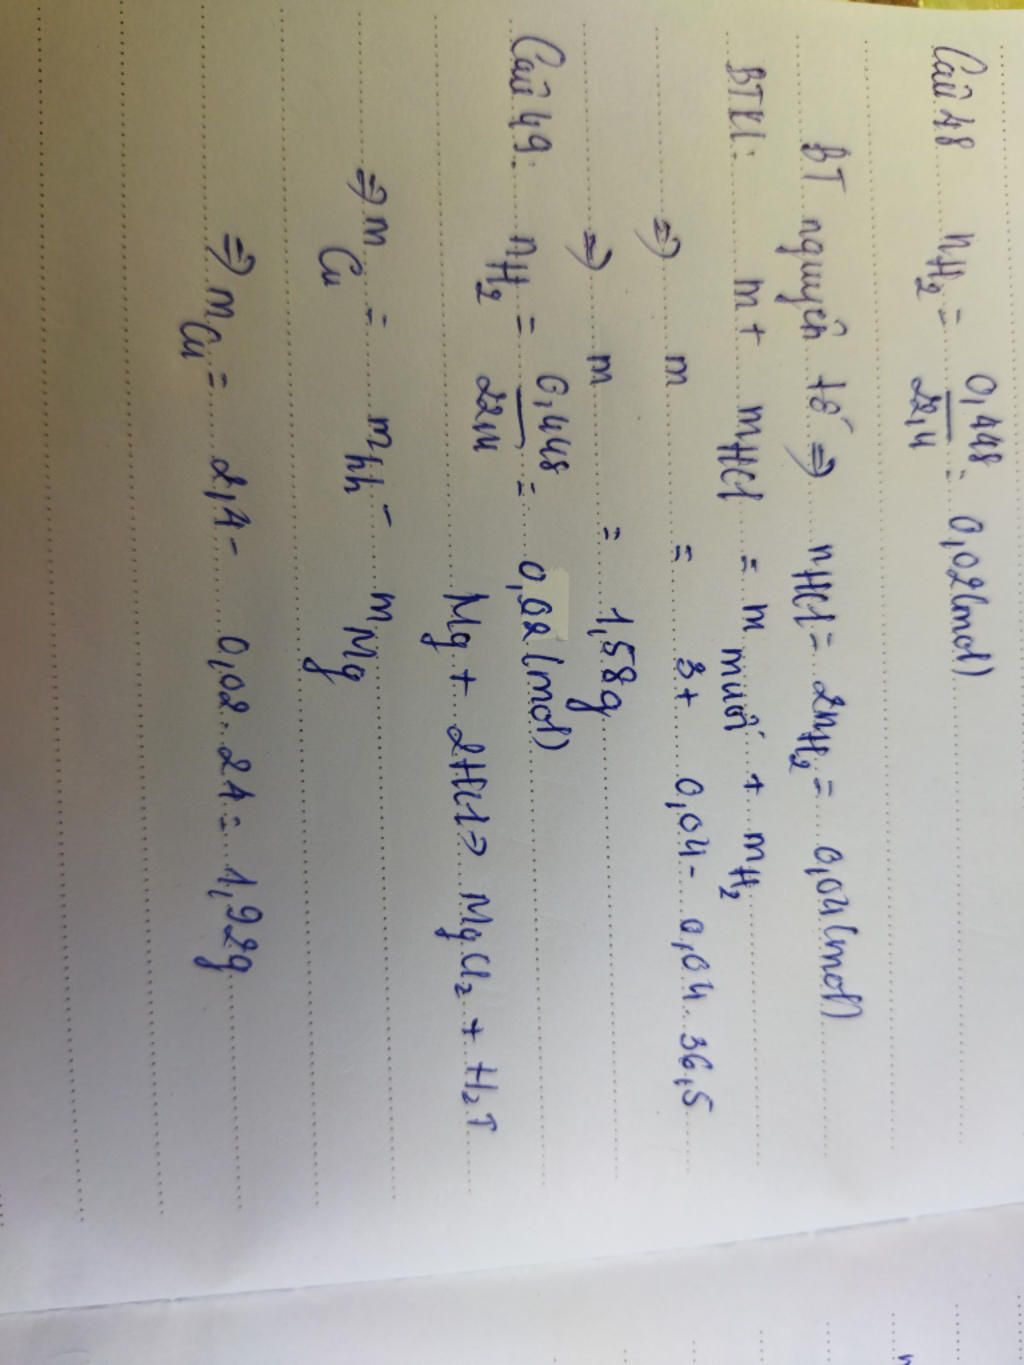 Câu 48 nH2 = 0,448/22,4 = 0,02(mol)
BT nguyên tố => nHCl = 2nH2 = 0,04(mol)
BTKL: m + mHCl = m muối + mH2
=> m = 3 + 0,04 - 0,04. 36,5
=> m = 1,58g
Câu 49. nH2 = 0,448/22,4 = 0,02(mol)
Mg + 2HCl => MgCl2 + H2↑
=> mCu = mhh - mMg
=> mCu = 2,4 - 0,02. 24 = 1,92g